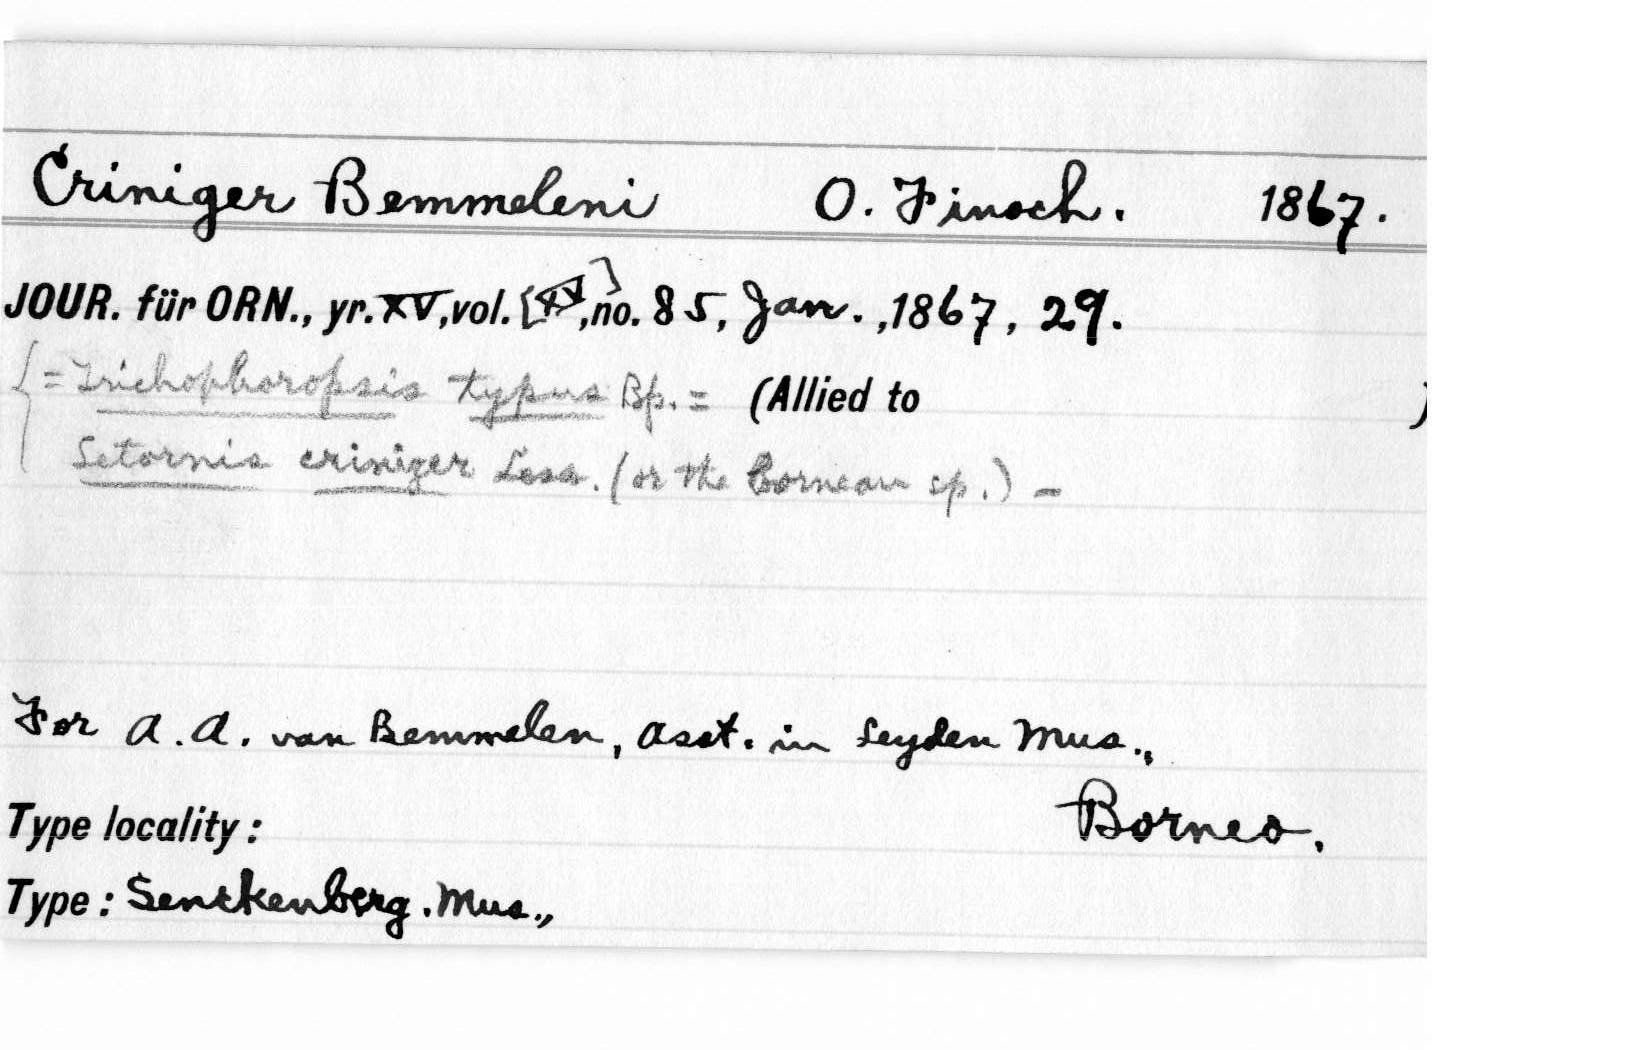 Criniger Bemmeleni O. Finsch. 1867.
JOUR. für ORN., yr. XV, vol. [XV], no. 85, Jan., 1867, 29.
{= Trichophoropsis typus Bp. = (Allied to )
Setornis criniger Less. (or the Bornean sp.) –
For A. A. van Bemmelen, Asst. in Leyden Mus.,
Borneo.
Type locality:
Type: Senckenberg. Mus.,